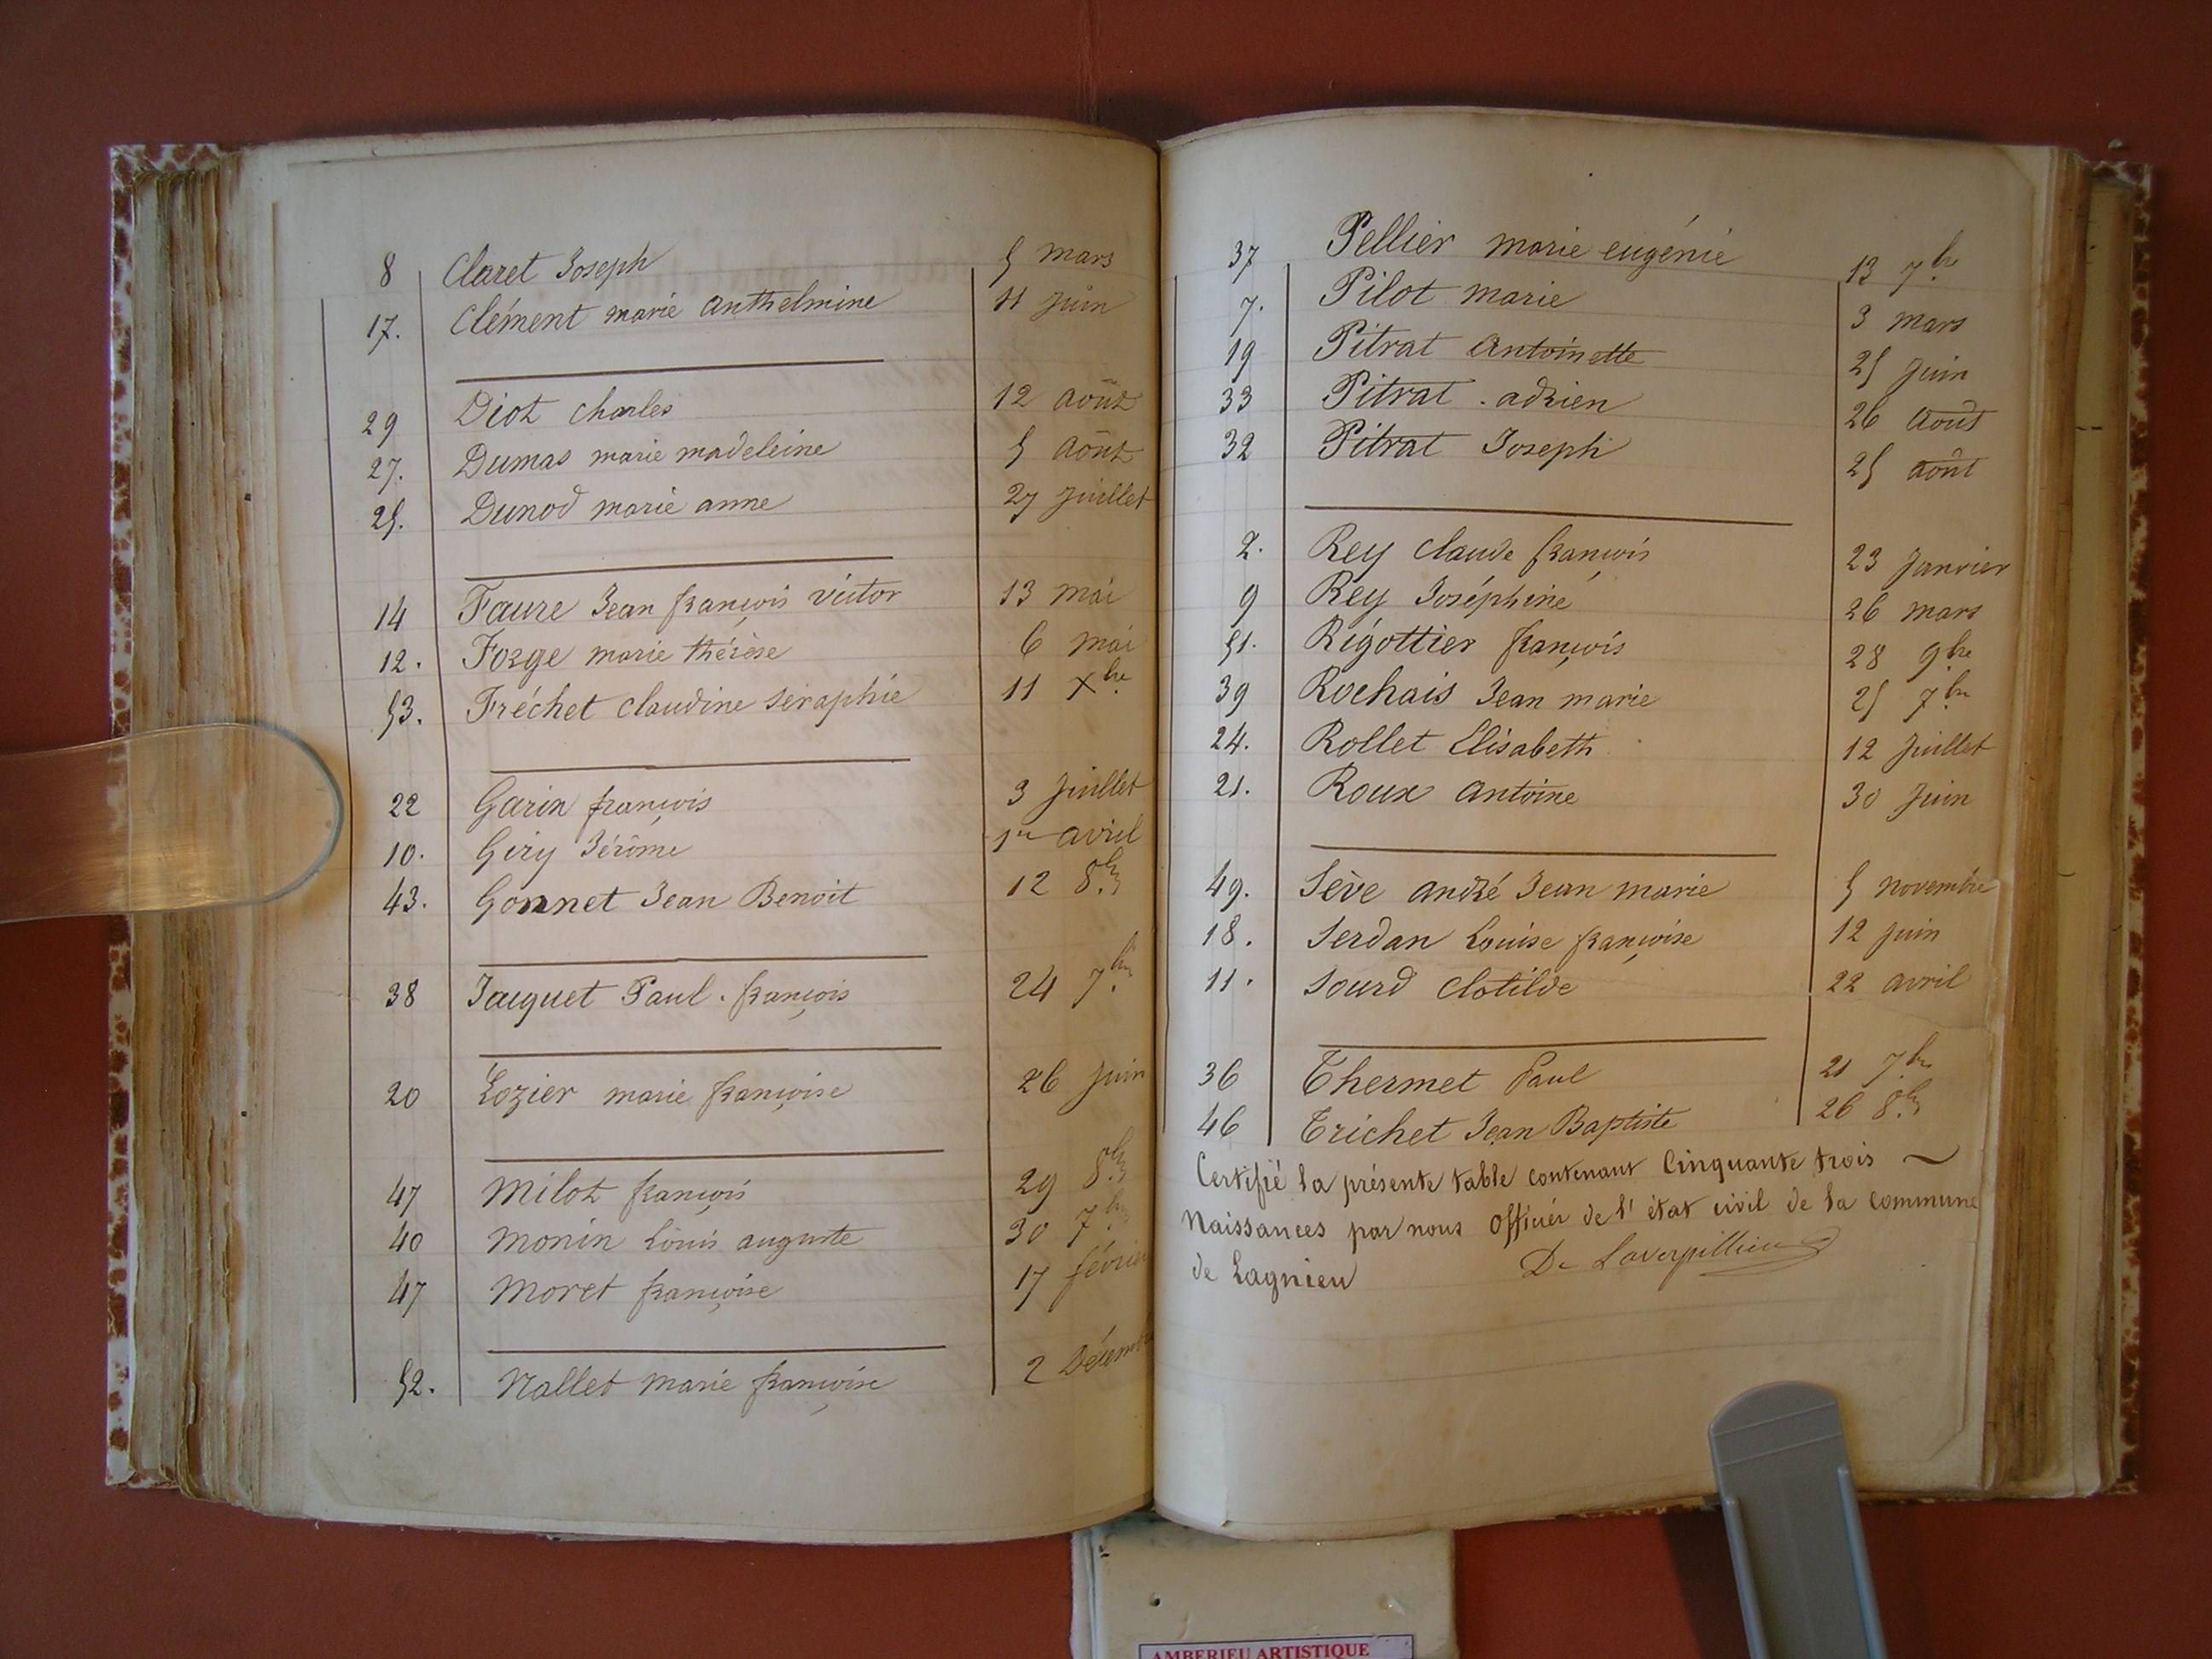 8 Claret Joseph 5 mars
17. Clément marie Anthelmine 11 Juin
29 Diot charles 12 Août
27. Dumas marie madeleine 5 Août
25. Dunod marie anne 27 Juillet
14 Faure Jean françois victor 13 mai
12. Forge marie thérèse 6 mai
53. Fréchet claudine séraphie 11 Xbre
22 Garin françois 3 Juillet
10. Giry Jérôme 1er avril
43. Gonnet Jean Benoit 12 8bre
38 Jacquet Paul. françois 24 7bre
20 Lozier marie françoise 26 Juin
47 Milot françois 29 8bre
40 Monin Louis auguste 30 7bre
47 Moret françoise 17 février
52. Nallet Marie françoise 2 Décembre
37 Pellier marie eugénie 13 7bre
7. Pilot marie 3 mars
19 Pitrat Antoinette 25 Juin
33 Pitrat. adrien 26 Août
32 Pitrat Joseph 25 août
2. Rey claude françois 23 Janvier
9 Rey Joséphine 26 mars
51. Rigottier françois 28 9bre
39 Rochais Jean marie 25 7bre
24. Rollet Elisabeth 12 Juillet
21. Roux Antoine 30 Juin
49. Sève andré Jean marie 5 novembre
18. Serdan Louise françoise 12 Juin
11. Sourd Clotilde 22 avril
36 Thermet Paul 21 7bre
46 Trichet Jean Baptiste 26 8bre
Certifié la présente table contenant Cinquante trois
Naissances par nous Officier de l'état civil de la commune
de Lagnieu De Laverpillieu
AMBERIEU ARTISTIQUE